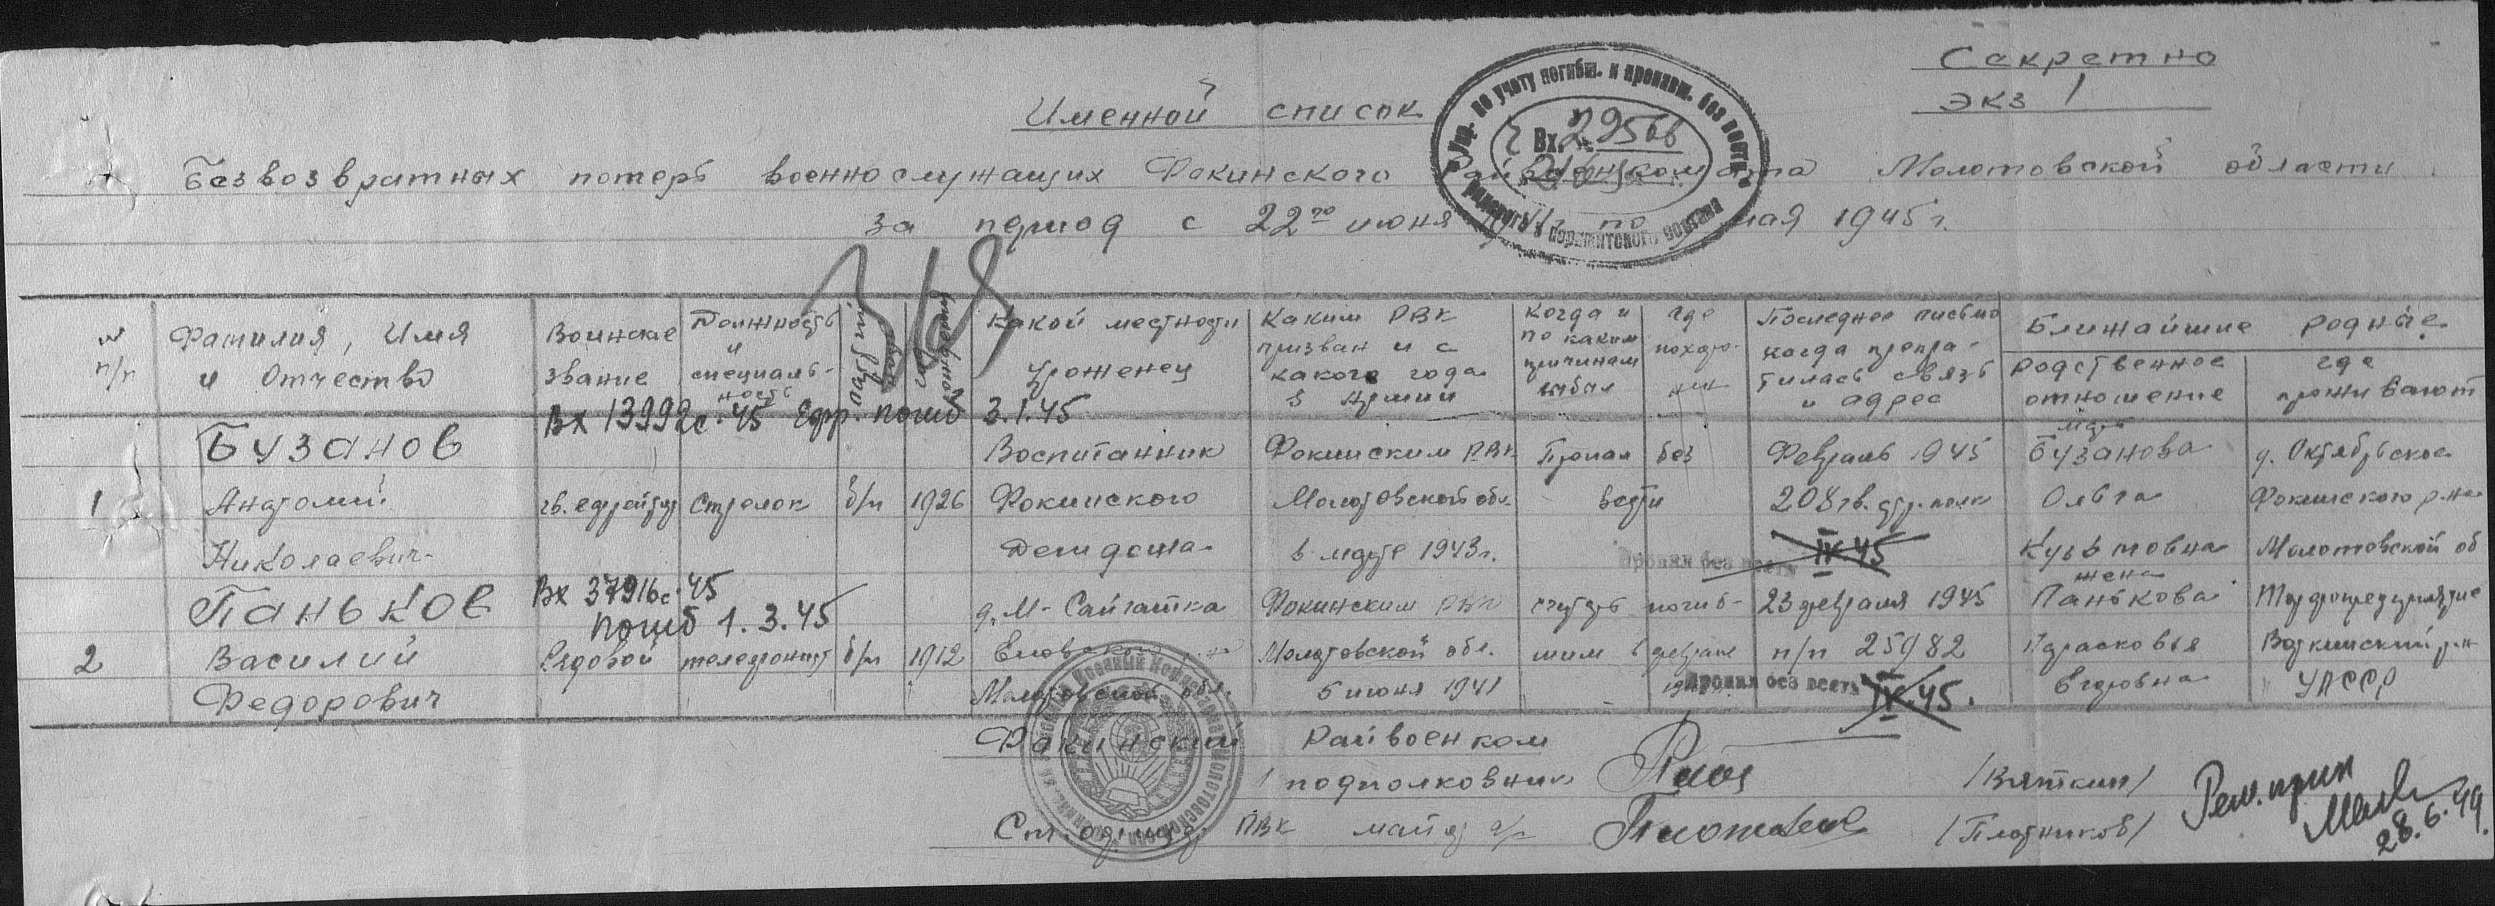 Секретно
экз 1
Именной список
безвозвратных потерь военнослужащих Фокинского Райвоенкомата Молотовской области
за период с 22го июня по мая 1945 г.
Упр. по учету погибш. и пропавш. без вести
Вх. 29566
рядового и сержантского состава
№ п/п
Фамилия, Имя и Отчество
Воинское звание
Должность и специальность
Партийность
год рождения
Какой местности уроженец
Каким РВК призван и с какого года в армии
Когда и по каким причинам выбыл
где похоронен
Последнее письмо когда прекратилась связь и адрес
Ближайшие родные
Родственное отношение
где проживают
Вх 13992с. 45 Ефр. погиб 3.1.45
1
Бузанов
Анатолий
Николаевич
гв. ефрейтор
Стрелок
б/п
1926
Воспитанник
Фокинского
Детдома
Фокинским РВК
Молотовской обл.
в марте 1943 г.
Пропал без
вести
Февраль 1945
208 гв. стр. полк
Пропал без вести
IX 45
мать
Бузанова
Ольга
Кузьмовна
д. Октябрьское
Фокинского р-на
Молотовской об
Вх 37916с. 45
погиб 1.3.45
2
Паньков
Василий
Федорович
Рядовой
телефонист
б/п
1912
д. М-Сайгатка
Еловского
Молотовской обл.
Фокинским РВК
Молотовской обл.
5 июня 1941
считать погиб-
шим в феврале
23 февраля 1945
п/п 25982
Пропал без вести
IX. 45.
жена
Панькова
Парасковья
Егоровна
Торфопредприятие
Воткинский р-н
УАССР
Фокинский Райвоенком
подполковник
/Вяткин/
РВК майор а/с
/Плотников/
28.6.49.